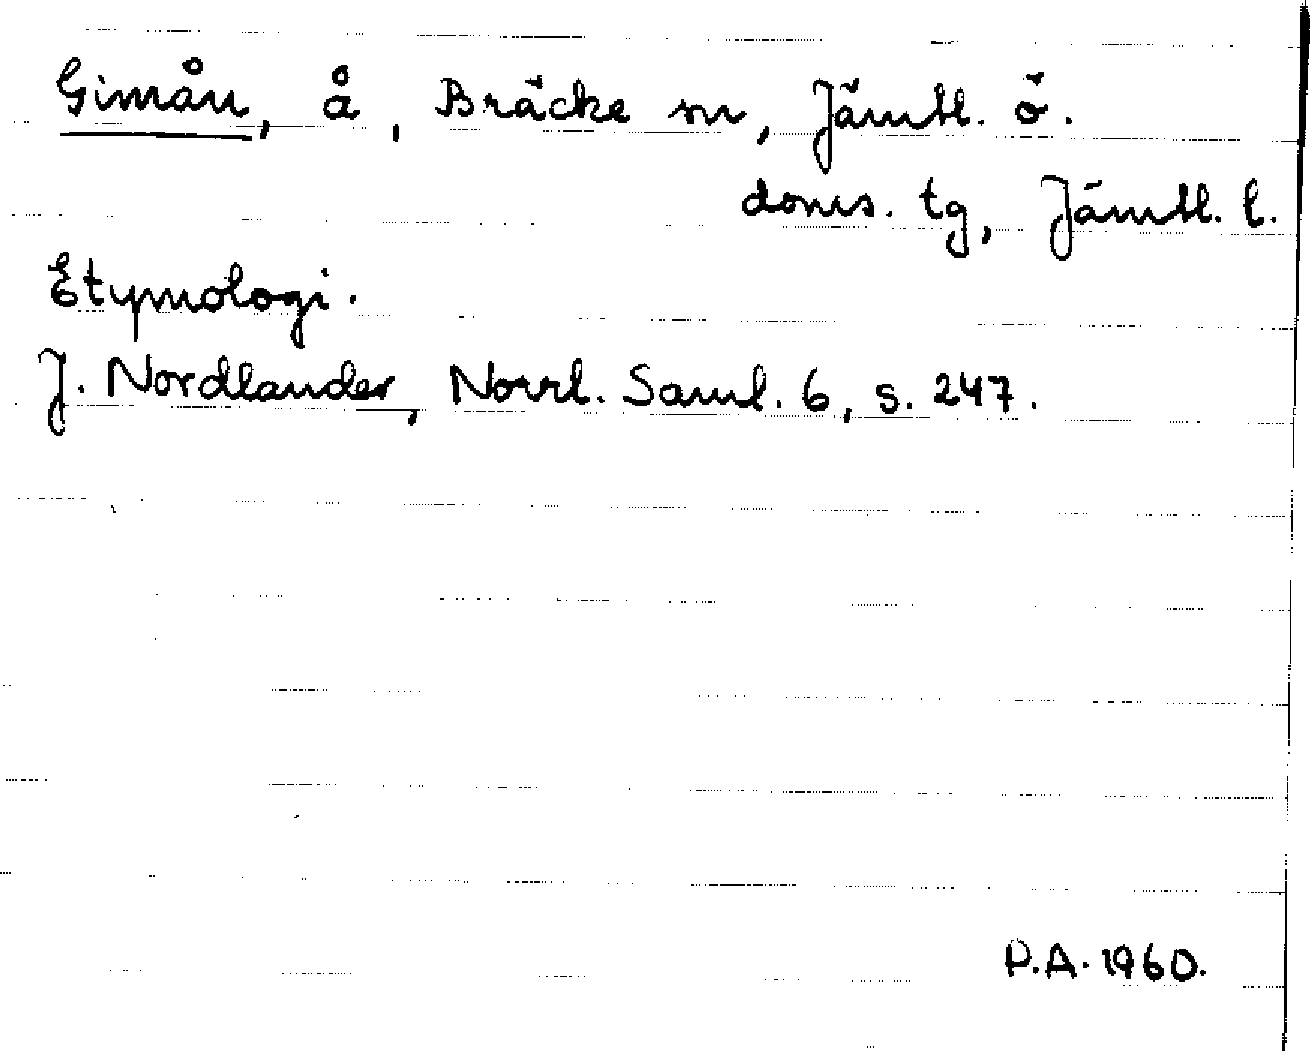 Gimån, å, Bräcke sn, Jämtl. ö.
doms. tg, Jämtl. l.
Etymologi.
J. Nordlander, Norrl. Saml. 6, s. 247.
P.A. 1960.